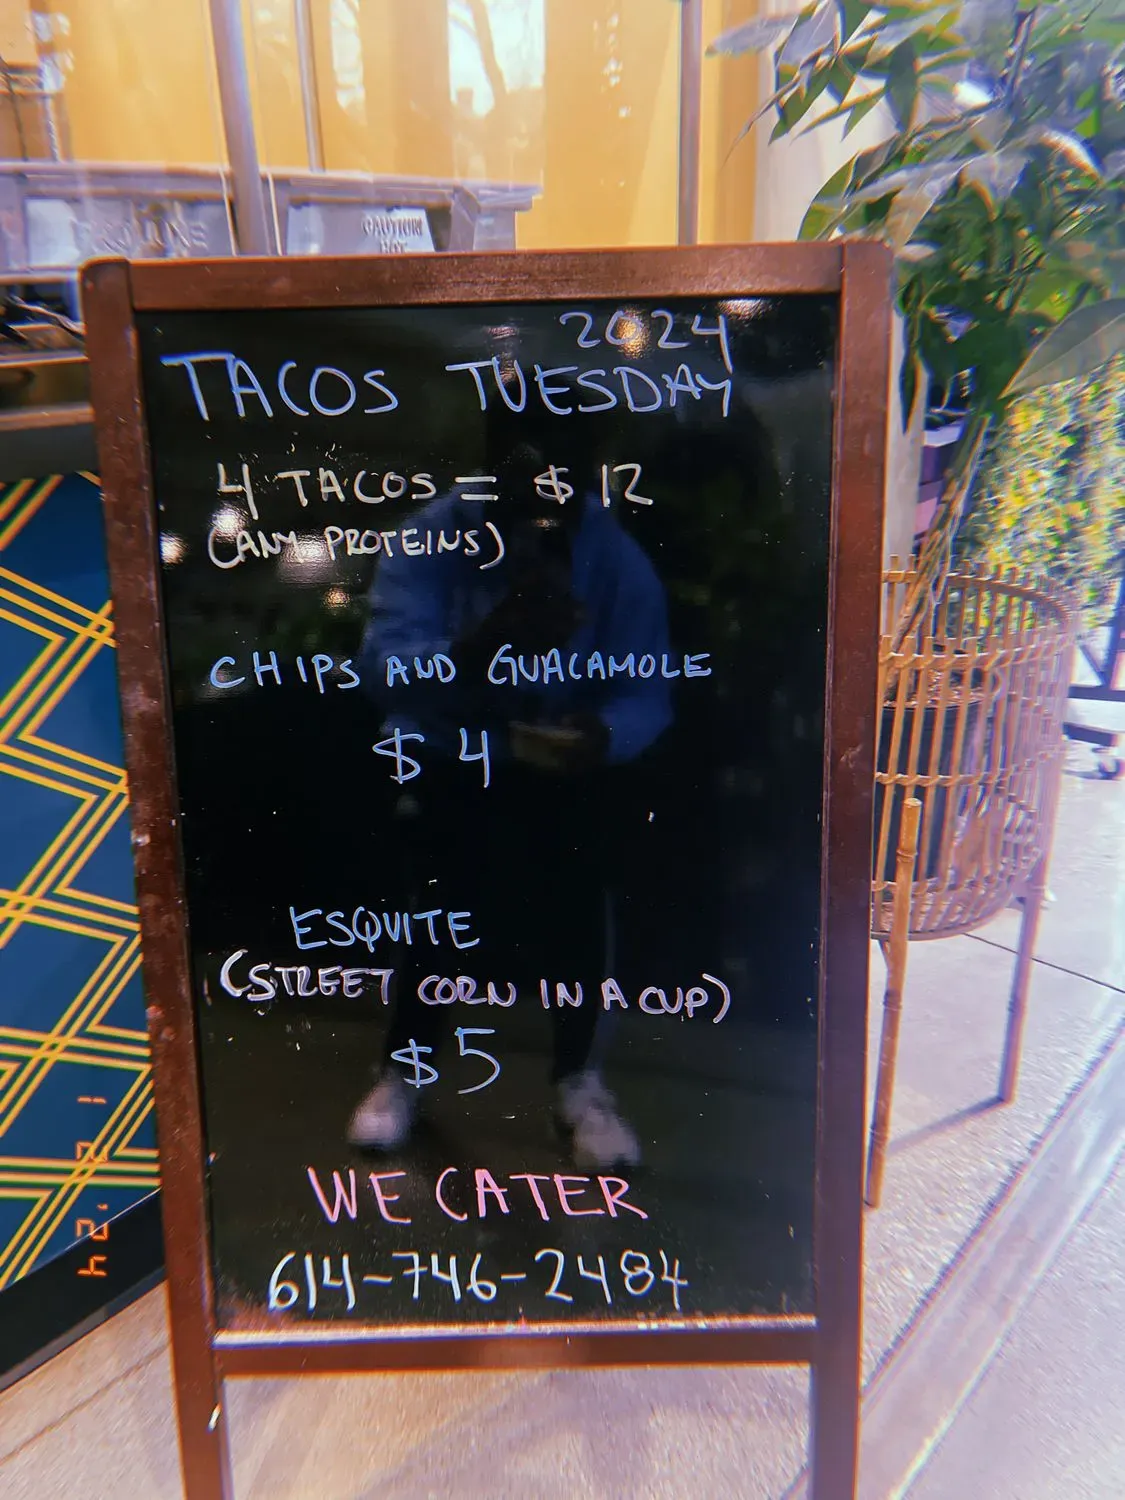 CAUTION
HOT
2024
TACOS TUESDAY
4 TACOS = $ 12
(ANY PROTEINS)
CHIPS AND GUACAMOLE
$ 4
ESQUITE
(STREET CORN IN A CUP)
$5
WE CATER
614-746-2484